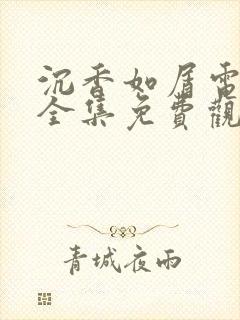 沉香如屑電
全集免費觀
青城夜雨